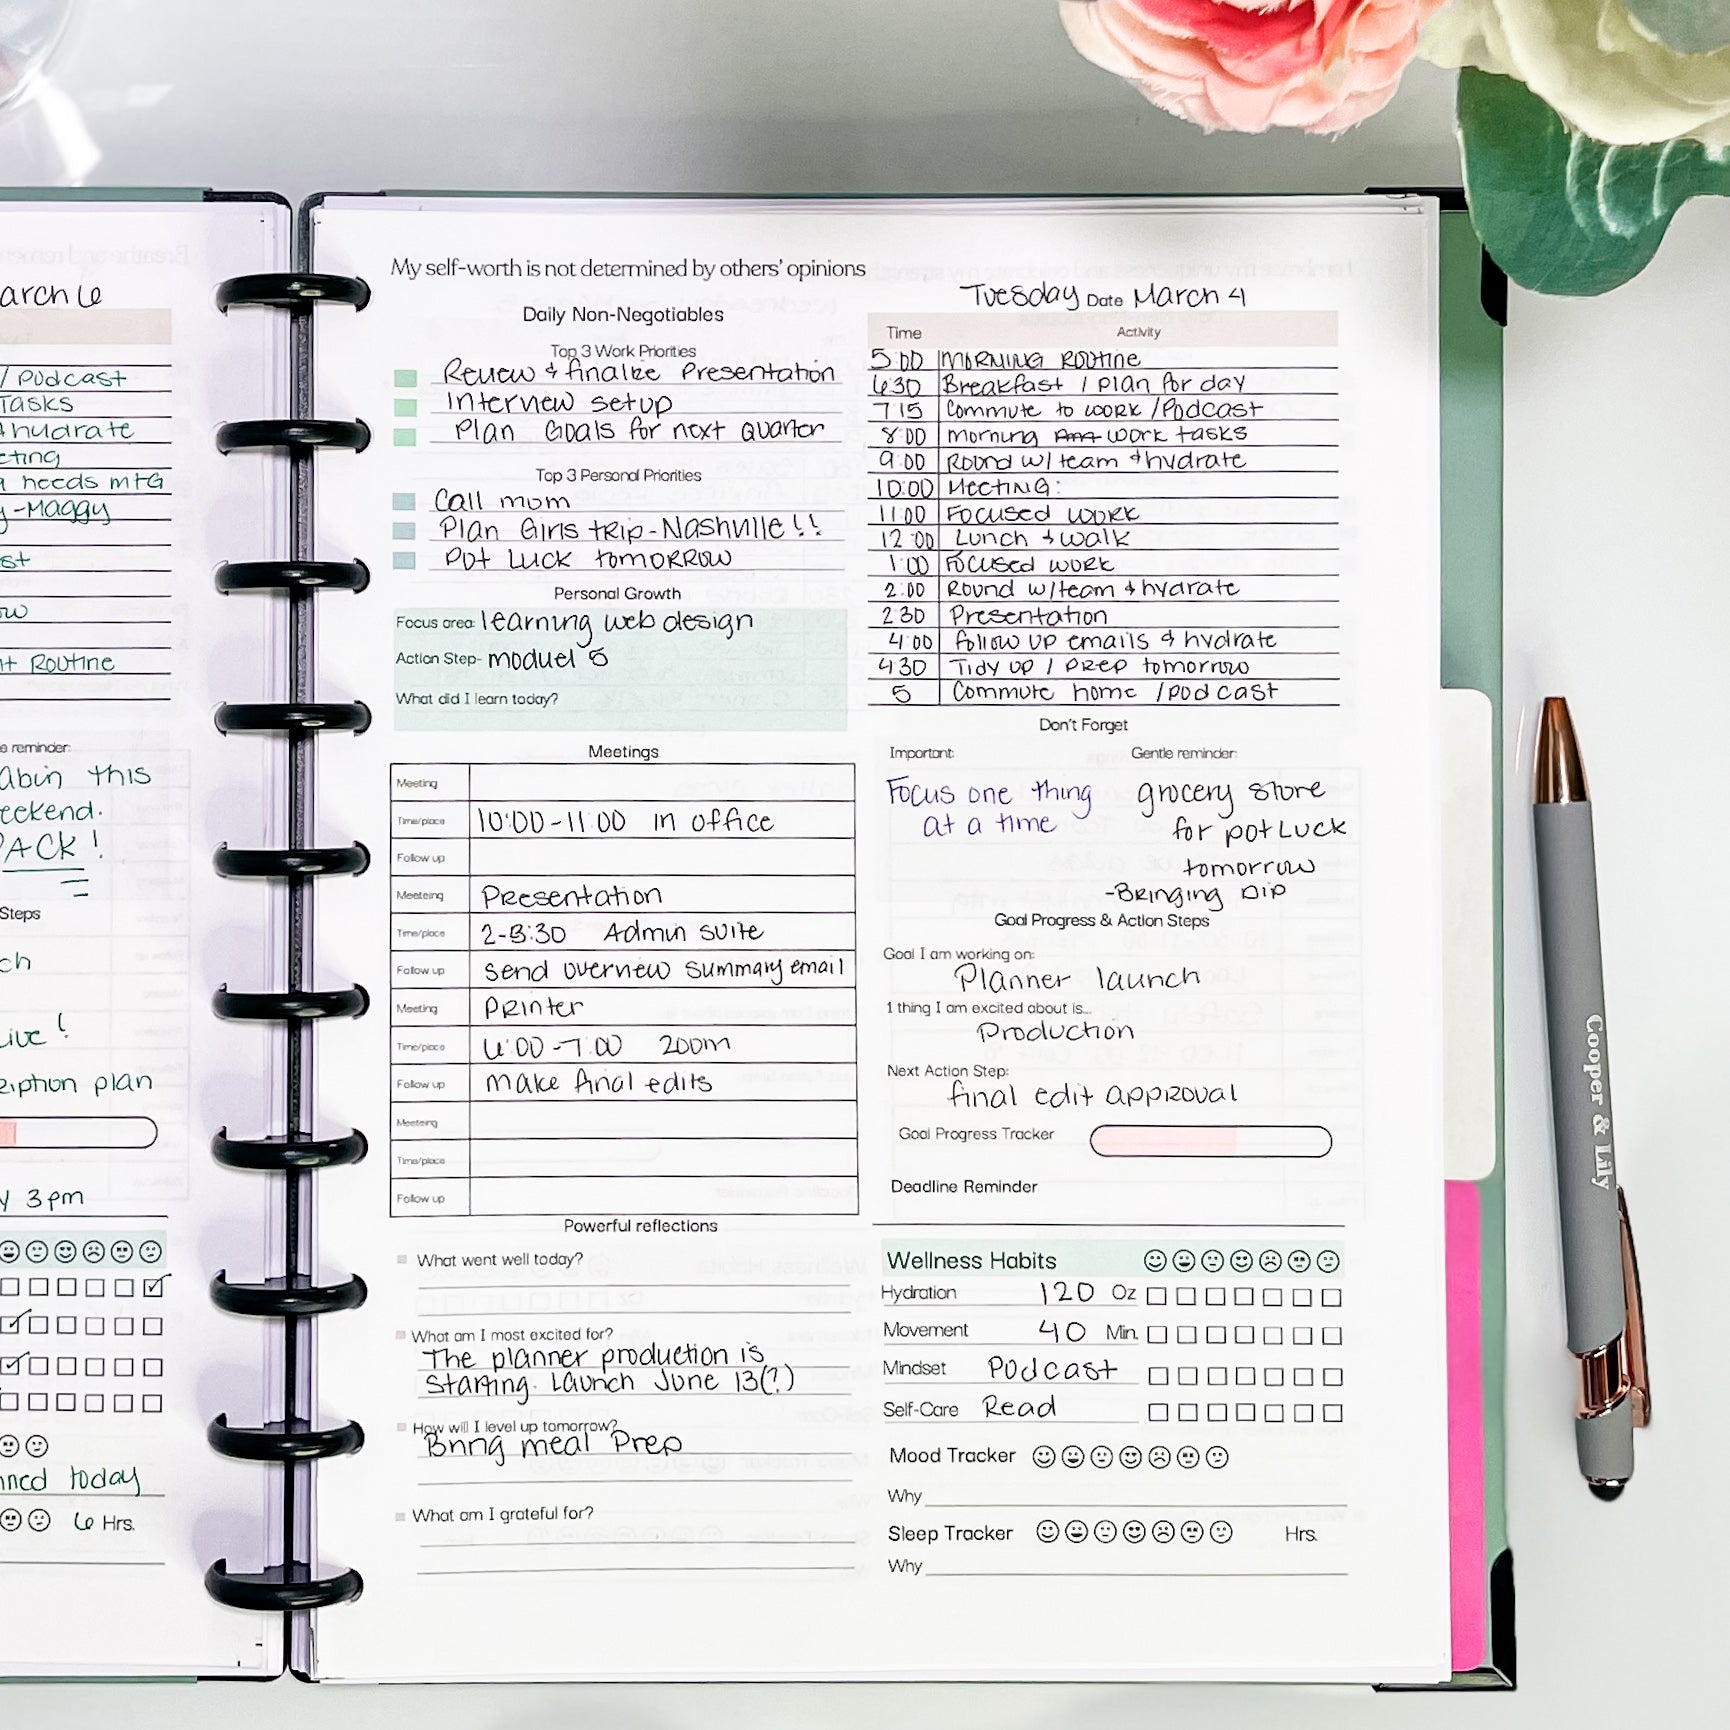 arch 6
/ Podcast
Tasks
hydrate
eting
g needs mtg
y - Maggy
st
ow
nt Routine
e reminder:
abin this
eekend.
PACK!
Steps
ch
Live!
ription plan
y 3pm
ned today
6 Hrs.
My self-worth is not determined by others' opinions
Daily Non-Negotiables
Top 3 Work Priorities
Review & finalize Presentation
Interview setup
Plan Goals for next Quarter
Top 3 Personal Priorities
Call mom
Plan Girls trip - Nashville!!
Pot Luck tomorrow
Personal Growth
Focus area: learning web design
Action Step- moduel 5
What did I learn today?
Meetings
Meeting
Time/place 10:00-11:00 in office
Follow up
Meeteing Presentation
Time/place 2-3:30 Admin suite
Follow up send overview summary email
Meeting Printer
Time/place 6:00-7:00 zoom
Follow up make final edits
Meeteing
Time/place
Follow up
Powerful reflections
What went well today?
What am I most excited for?
The planner production is
starting. Launch June 13(?)
How will I level up tomorrow?
Bring meal Prep
What am I grateful for?
Tuesday Date March 4
Time Activity
5:00 Morning Routine
6:30 Breakfast / plan for day
7:15 Commute to work / Podcast
8:00 morning work tasks
9:00 Round w/ team & hydrate
10:00 Meeting:
11:00 Focused work
12:00 Lunch & walk
1:00 Focused work
2:00 Round w/team & hydrate
2:30 Presentation
4:00 follow up emails & hydrate
4:30 Tidy up / prep tomorrow
5 Commute home / podcast
Don't Forget
Important: Gentle reminder:
Focus one thing
at a time
grocery store
for pot Luck
tomorrow
-Bringing Dip
Goal Progress & Action Steps
Goal I am working on:
Planner launch
1 thing I am excited about is...
Production
Next Action Step:
final edit approval
Goal Progress Tracker
Deadline Reminder
Wellness Habits
Hydration 120 Oz
Movement 40 Min.
Mindset Podcast
Self-Care Read
Mood Tracker
Why
Sleep Tracker Hrs.
Why
Cooper & Lily